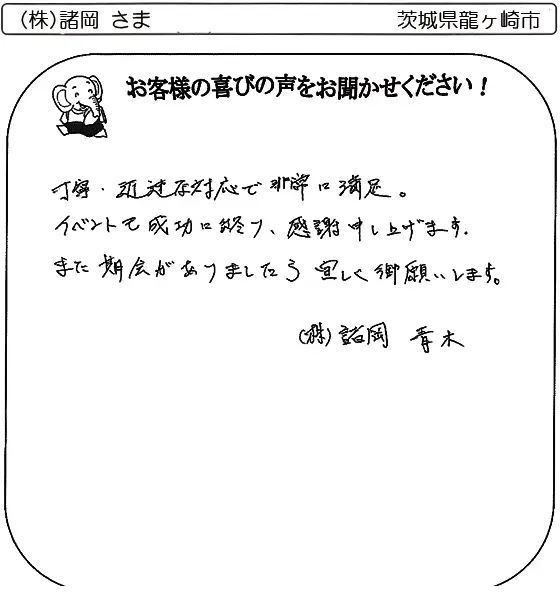 (株)諸岡 さま 茨城県龍ヶ崎市
お客様の喜びの声をお聞かせください！
丁寧・迅速な対応で非常に満足。
イベントも成功に終り、感謝申し上げます。
また期会がありましたら宜しく御願いします。
(株)諸岡 青木